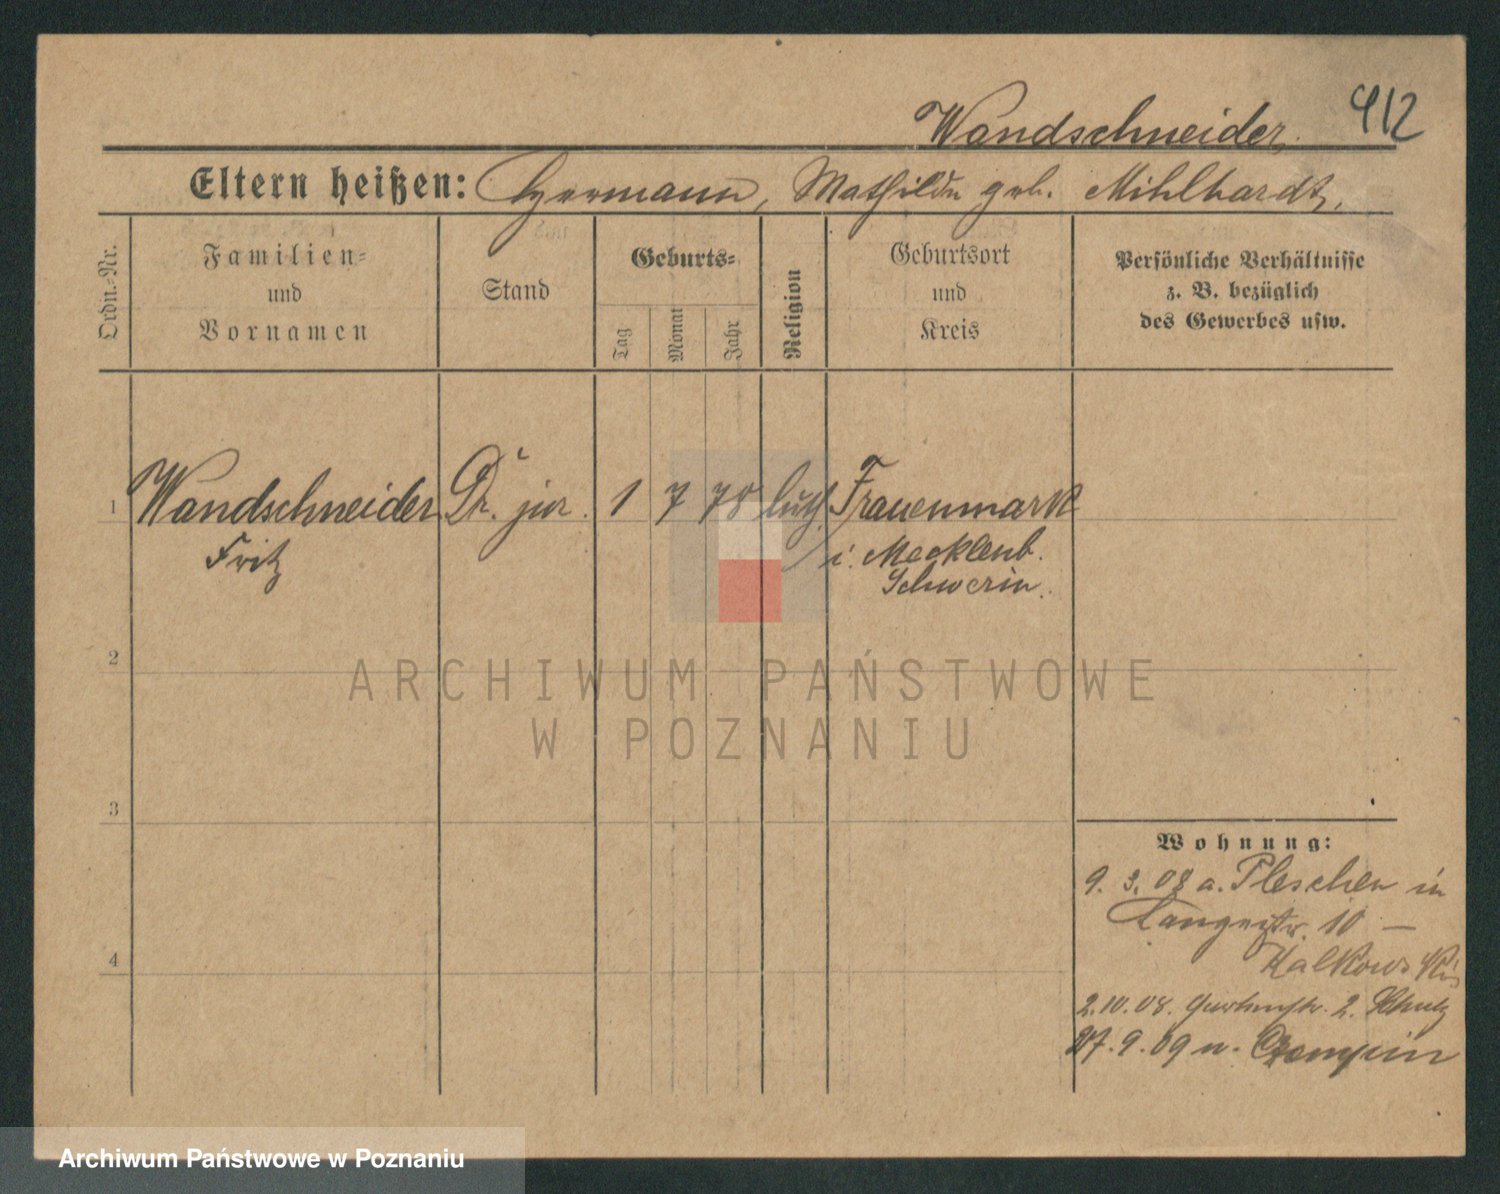 Wandschneider. 412
Eltern heißen: Hermann, Mathilde geb. Mihlhardt.
Ordn.-Nr.
Familien-
und
Vornamen
Stand
Geburts-
Tag
Monat
Jahr
Religion
Geburtsort
und
Kreis
Persönliche Verhältnisse
z. B. bezüglich
des Gewerbes usw.
1 Wandschneider Dr. jur. 1 7 78 luth. Frauenmark
Fritz i. Mecklenb.
Schwerin.
2
ARCHIWUM PAŃSTWOWE
W POZNANIU
3
Wohnung:
9. 3. 08 a. Pleschen in
Langestr. 10 —
Kalkowski
4
2.10.08. Gartenstr. 2. Schulz
27.9.09 n. Czempin
Archiwum Państwowe w Poznaniu